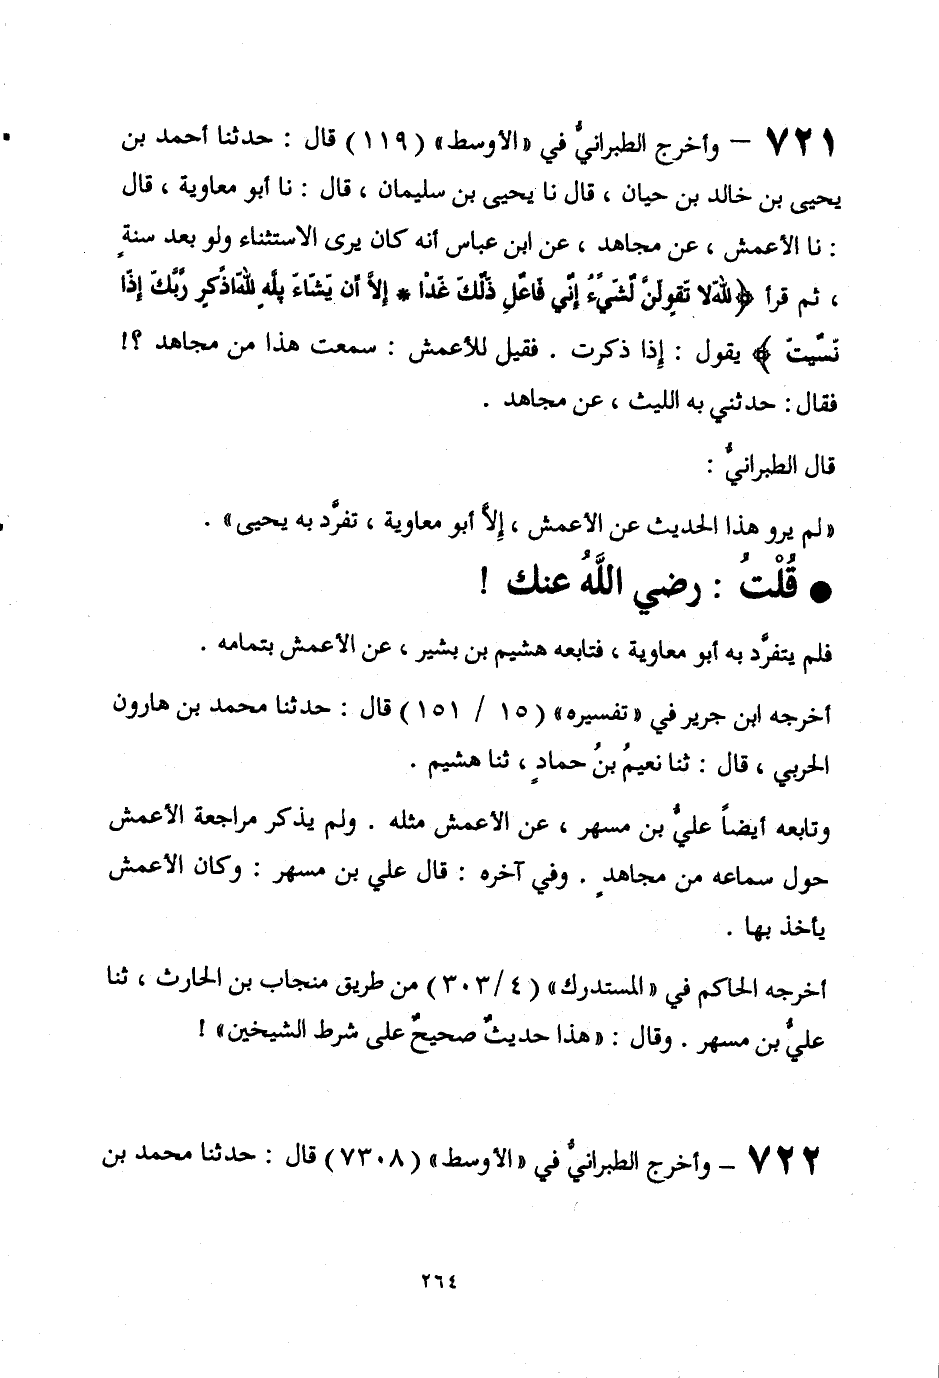 ٧٢١ – وأخرج الطبرانيُّ في «الأوسط» (١١٩) قال : حدثنا أحمد بن
يحيى بن خالد بن حيان ، قال نا يحيى بن سليمان ، قال : نا أبو معاوية ، قال
: نا الأعمش ، عن مجاهد ، عن ابن عباس أنه كان يرى الاستثناء ولو بعد سنةٍ
، ثم قرأ ﴿ تَقولَنَّ لِّشَيْءٍ إِنِّي فَاعِلٌ ذَلِكَ غَدًا * إِلاَّ أَن يَشَاءَ رَّبَّكَ إِذَا
نَسِيتَ ﴾ يقول : إِذا ذكرت . فقيل للأعمش : سمعت هذا من مجاهد ؟!
فقال : حدثني به الليث ، عن مجاهد .
قال الطبرانيُّ :
«لم يرو هذا الحديث عن الأعمش ، إِلاَّ أبو معاوية ، تفرَّد به يحيى» .
● قُلْتُ : رضي اللَّهُ عنك !
فلم يتفرَّد به أبو معاوية ، فتابعه هشيم بن بشير ، عن الأعمش بتمامه .
أخرجه ابن جرير في «تفسيره» (١٥ / ١٥١) قال : حدثنا محمد بن هارون
الحربي ، قال : ثنا نعيمُ بنُ حمادٍ ، ثنا هشيم .
وتابعه أيضاً عليُّ بن مسهر ، عن الأعمش مثله . ولم يذكر مراجعة الأعمش
حول سماعه من مجاهدٍ . وفي آخره : قال علي بن مسهر : وكان الأعمش
يأخذ بها .
أخرجه الحاكم في «المستدرك» (٤/ ٣٠٣) من طريق منجاب بن الحارث ، ثنا
عليُّ بن مسهر . وقال : «هذا حديثٌ صحيحٌ على شرط الشيخين» !
٧٢٢ – وأخرج الطبرانيُّ في «الأوسط» (٧٣٠٨) قال : حدثنا محمد بن
٢٦٤